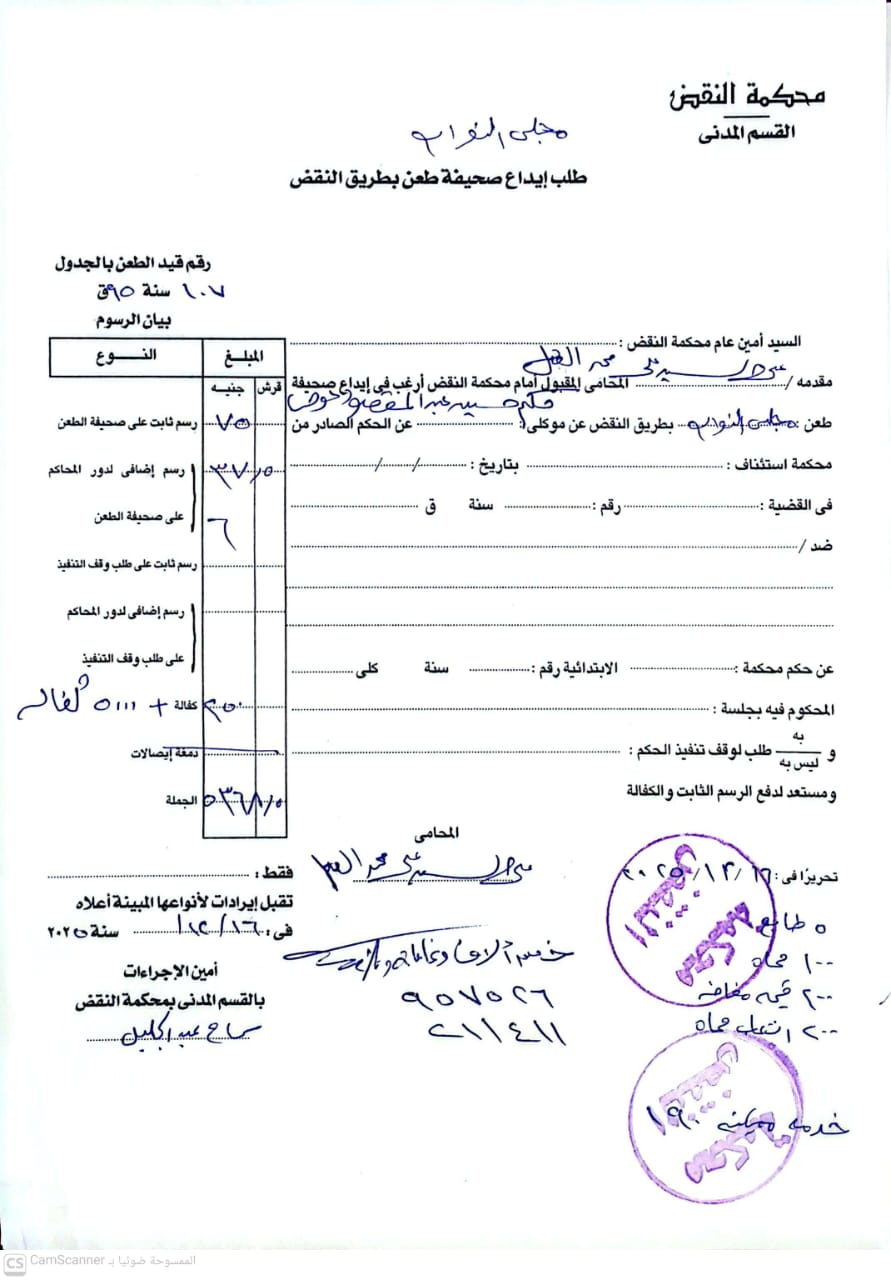 محكمة النقض
القسم المدنى
مجلس النواب
طلب إيداع صحيفة طعن بطريق النقض
رقم قيد الطعن بالجدول
١٠٧ سنة ٩٥ق
بيان الرسوم
النوع المبلغ
جنيه قرش
رسم ثابت على صحيفة الطعن ٧٥
رسم إضافى لدور المحاكم ٣٧/٥
على صحيفة الطعن ٦
رسم ثابت على طلب وقف التنفيذ
رسم إضافى لدور المحاكم
على طلب وقف التنفيذ
كفالة ٢٥٠ + ٥٠٠٠ كفالة
دمغة إيصالات
الجملة ٥٣٦٨/٥
السيد أمين عام محكمة النقض :
مقدمه / السيد على محمد المحامى المقبول أمام محكمة النقض أرغب فى إيداع صحيفة
طعن : مجلس النواب بطريق النقض عن موكلى : عبد المقصود عوض عن الحكم الصادر من
محكمة استئناف : بتاريخ : / /
فى القضية : رقم : سنة ق
ضد /
عن حكم محكمة : الابتدائية رقم : سنة كلى
المحكوم فيه بجلسة :
و به / ليس به طلب لوقف تنفيذ الحكم :
ومستعد لدفع الرسم الثابت والكفالة
المحامى
السيد على محمد
تحريرًا فى : ١٦/١٢/٢٠٢٥
فقط :
تقبل إيرادات لأنواعها المبينة أعلاه
فى : ١٦/١٢/ سنة ٢٠٢٥
أمين الإجراءات
بالقسم المدنى بمحكمة النقض
سماح عبد الجليل
خمس آلاف
٩٥٧٥٢٦
٢١١٤١١
٥ طابع
١٠٠ محاماه
٢٠٠ قيمه مضافه
٢٠٠ اتعاب محاماه
خدمه مميكنه ١٩٠
محكمة النقض
محكمة النقض
الممسوحة ضوئيا بـ CamScanner
CS